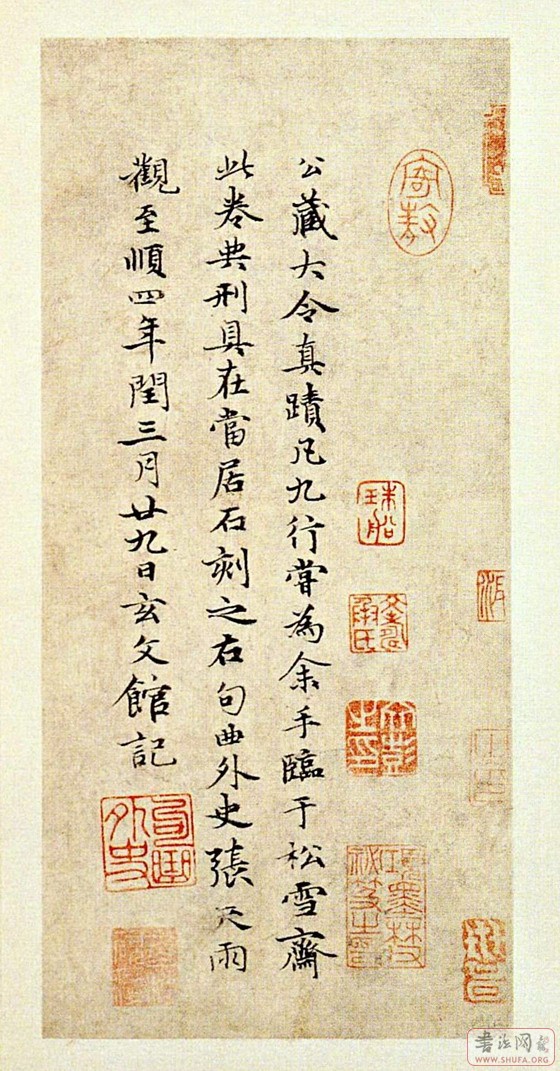 公藏大令真蹟凡九行嘗為余手臨于松雪齋
此卷典刑具在當居石刻之右句曲外史張天雨
觀至順四年閏三月廿九日玄文館記
寄敖
句曲外史
WWW.SHUFA.ORG